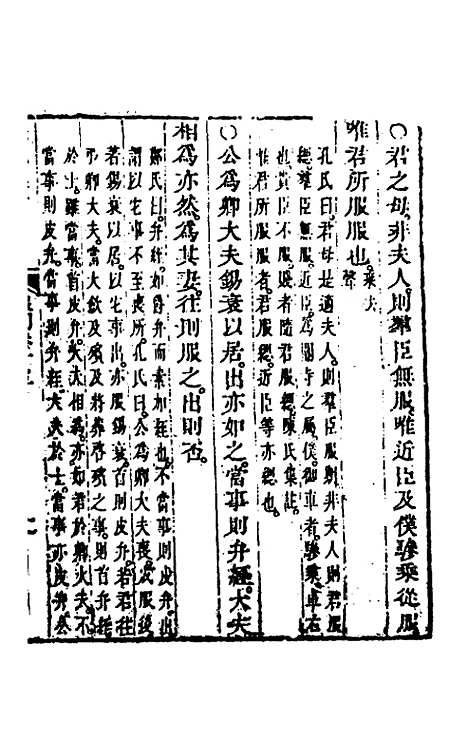 ○君之母。非夫人。則羣臣無服。唯近臣及僕驂乘從服
唯君所服服也。乘去聲
孔氏曰。君母是適夫人。則羣臣服期。非夫人則君服
緦。羣臣無服。近臣。為閽寺之屬。僕。御車者。驂乘。車右
也。貴臣不服。賤者隨君服緦。陳氏集註。
惟君所服服者。君服緦。近臣等亦緦也。
○公為卿大夫錫衰以居。出亦如之。當事則弁絰。大夫
相為亦然。為其妻。往則服之。出則否。
鄭氏曰。弁絰。如爵弁而素加絰也。不當事則皮弁。出
謂以它事不至喪所。孔氏曰。公為卿大夫喪。成服後
若錫衰以居。以它事出。亦服錫衰。首則皮弁。若君往
弔卿大夫。當大歛及殯及將葬啓殯之事。則首弁絰
於士。雖當事首皮弁。大夫相為。亦如君於卿大夫。不
當事則皮弁。當事則弁絰。大夫於士。當事亦皮弁。